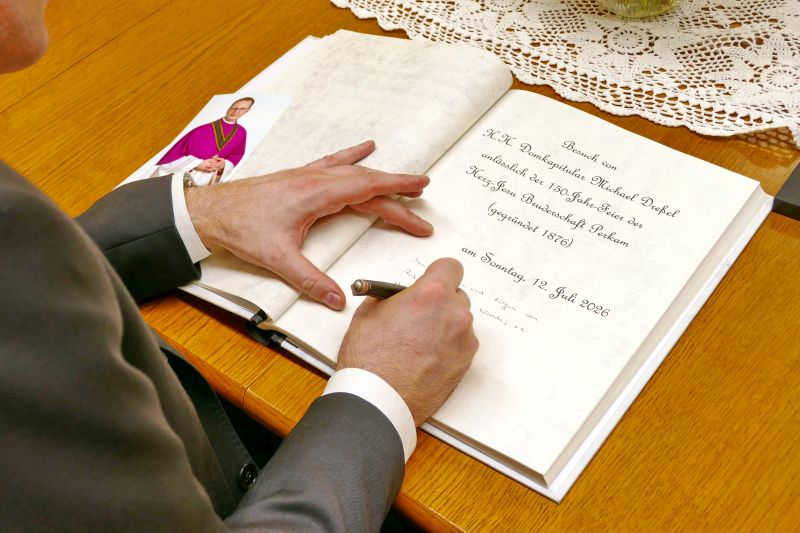 Besuch von
H.H. Domkapitular Michael Dreßel
anlässlich der 150-Jahr-Feier der
Herz-Jesu Bruderschaft Perkam
(gegründet 1876)
am Sonntag, 12. Juli 2026
und
von